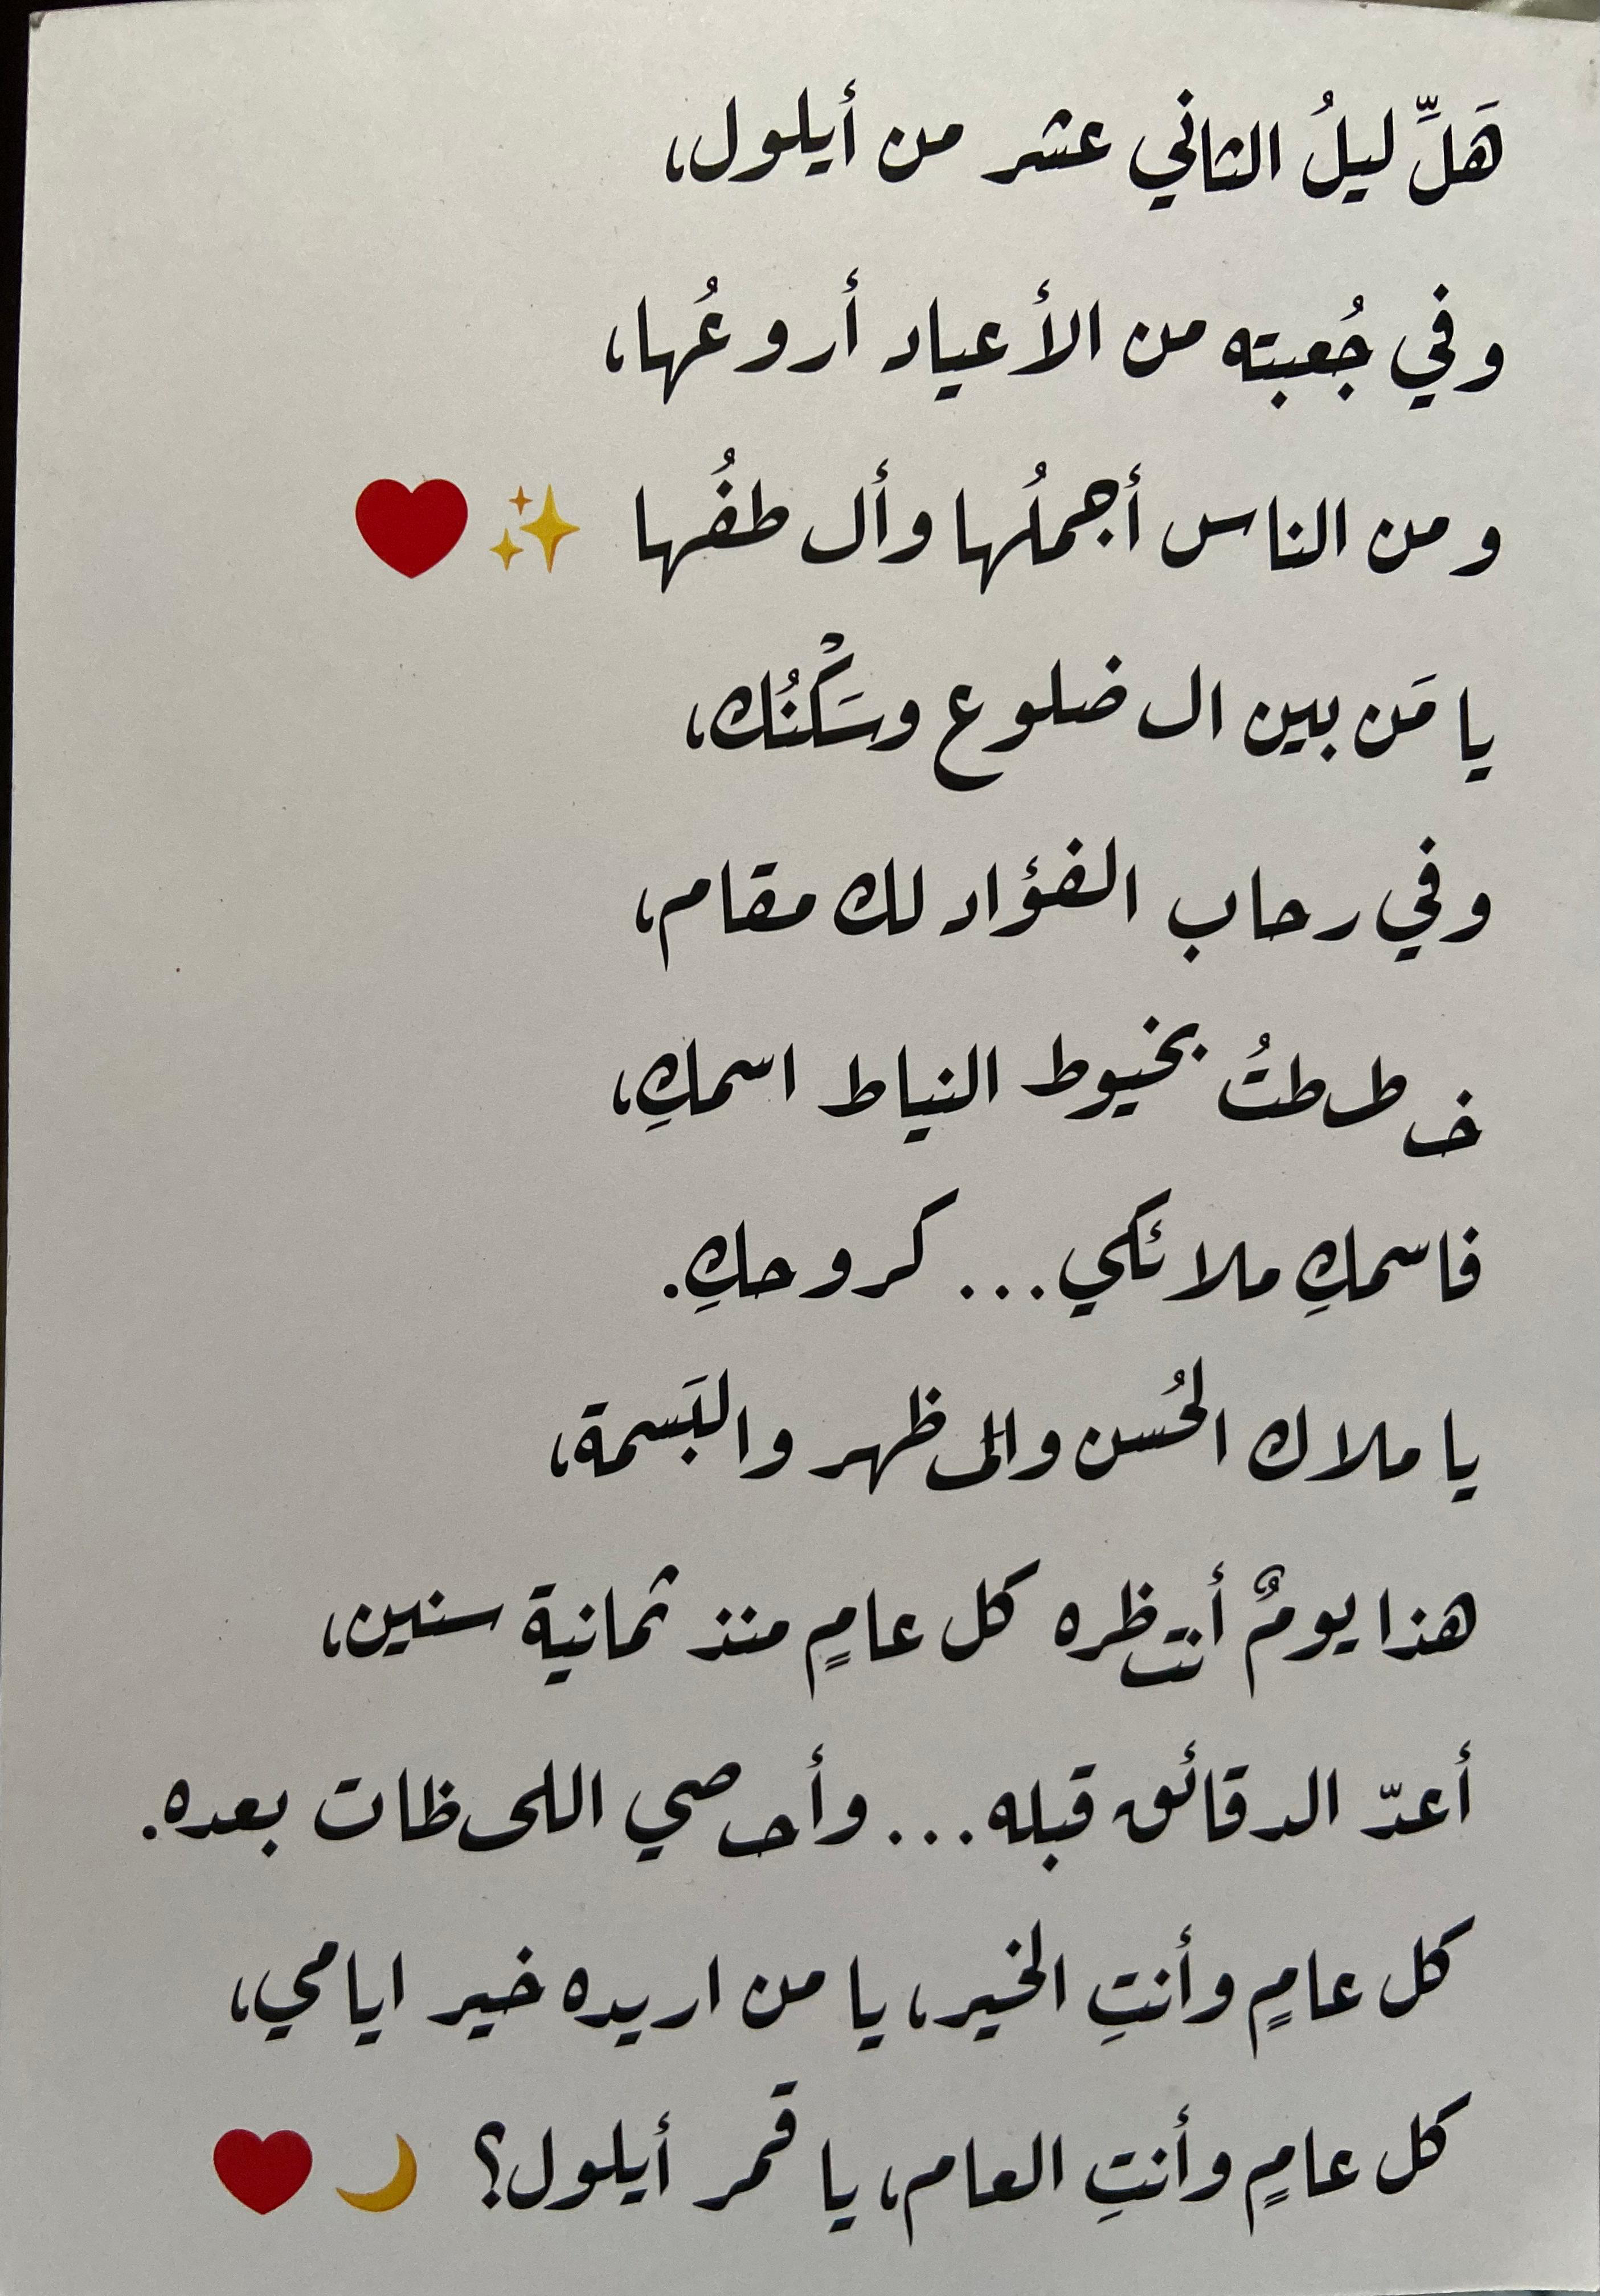 هَلِّ ليلُ الثاني عشر من أيلول،
وفي جُعبته من الأعياد أروعُها،
ومن الناس أجملُها وألطفُها ✨❤️
يا مَن بين الضلوع وسَكْنُك،
وفي رحاب الفؤاد لك مقام،
خططتُ بخيوط النياط اسمكِ،
فاسمكِ ملائكي... كروحكِ.
يا ملاك الحُسن والمظهر والبَسمة،
هذا يومٌ أنتظره كل عامٍ منذ ثمانية سنين،
أعدّ الدقائق قبله... وأحصي اللحظات بعده.
كل عامٍ وأنتِ الخير، يا من اريده خير ايامي،
كل عامٍ وأنتِ العام، يا قمر أيلول؟ 🌙❤️